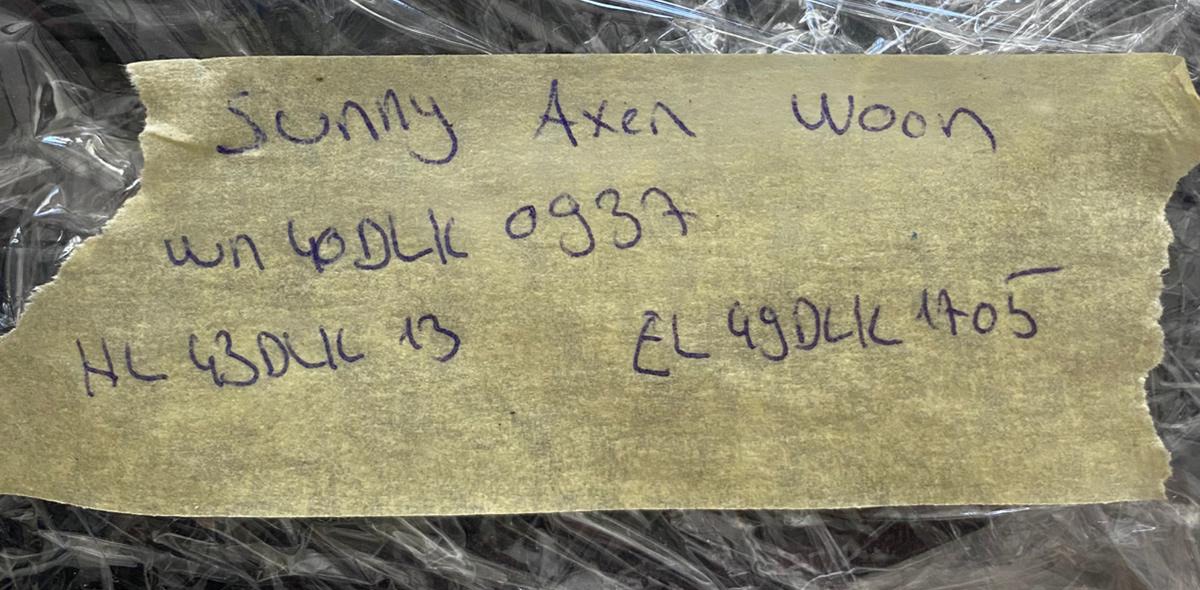 Sunny Axen Woon
wn 40DLK 0937
HL 43DLK 13 EL 49DLK 1705